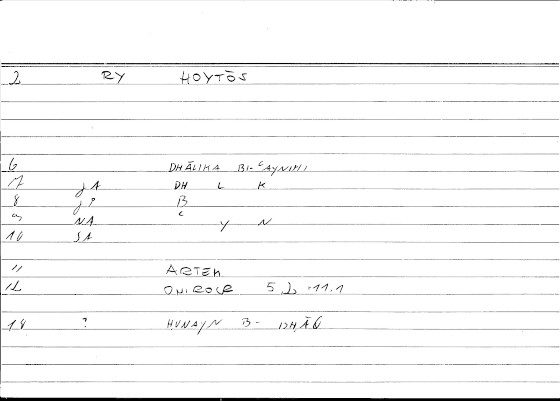 2 RY HOYTŌS
6 DHĀLIKA BI-ʿAYNIHI
7 JA DH L K
8 J? B
9 NA ʿ Y N
10 SA
11 ARTEM
12 ONIROCR 5 2 .11.1
18 ? HUNAYN B- DHĀ